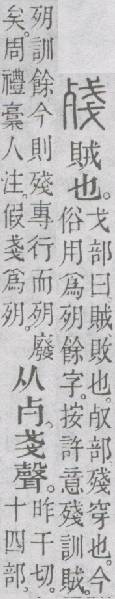 殘賊也。戈部曰賊敗也。㕡部殘穿也。今
俗用爲𣦼餘字。按許意殘訓賊。
𣦼訓餘。今則殘專行而𣦼廢
矣。周禮稾人注。假戔爲𣦼。从歺。戔聲。昨干切。十四部。